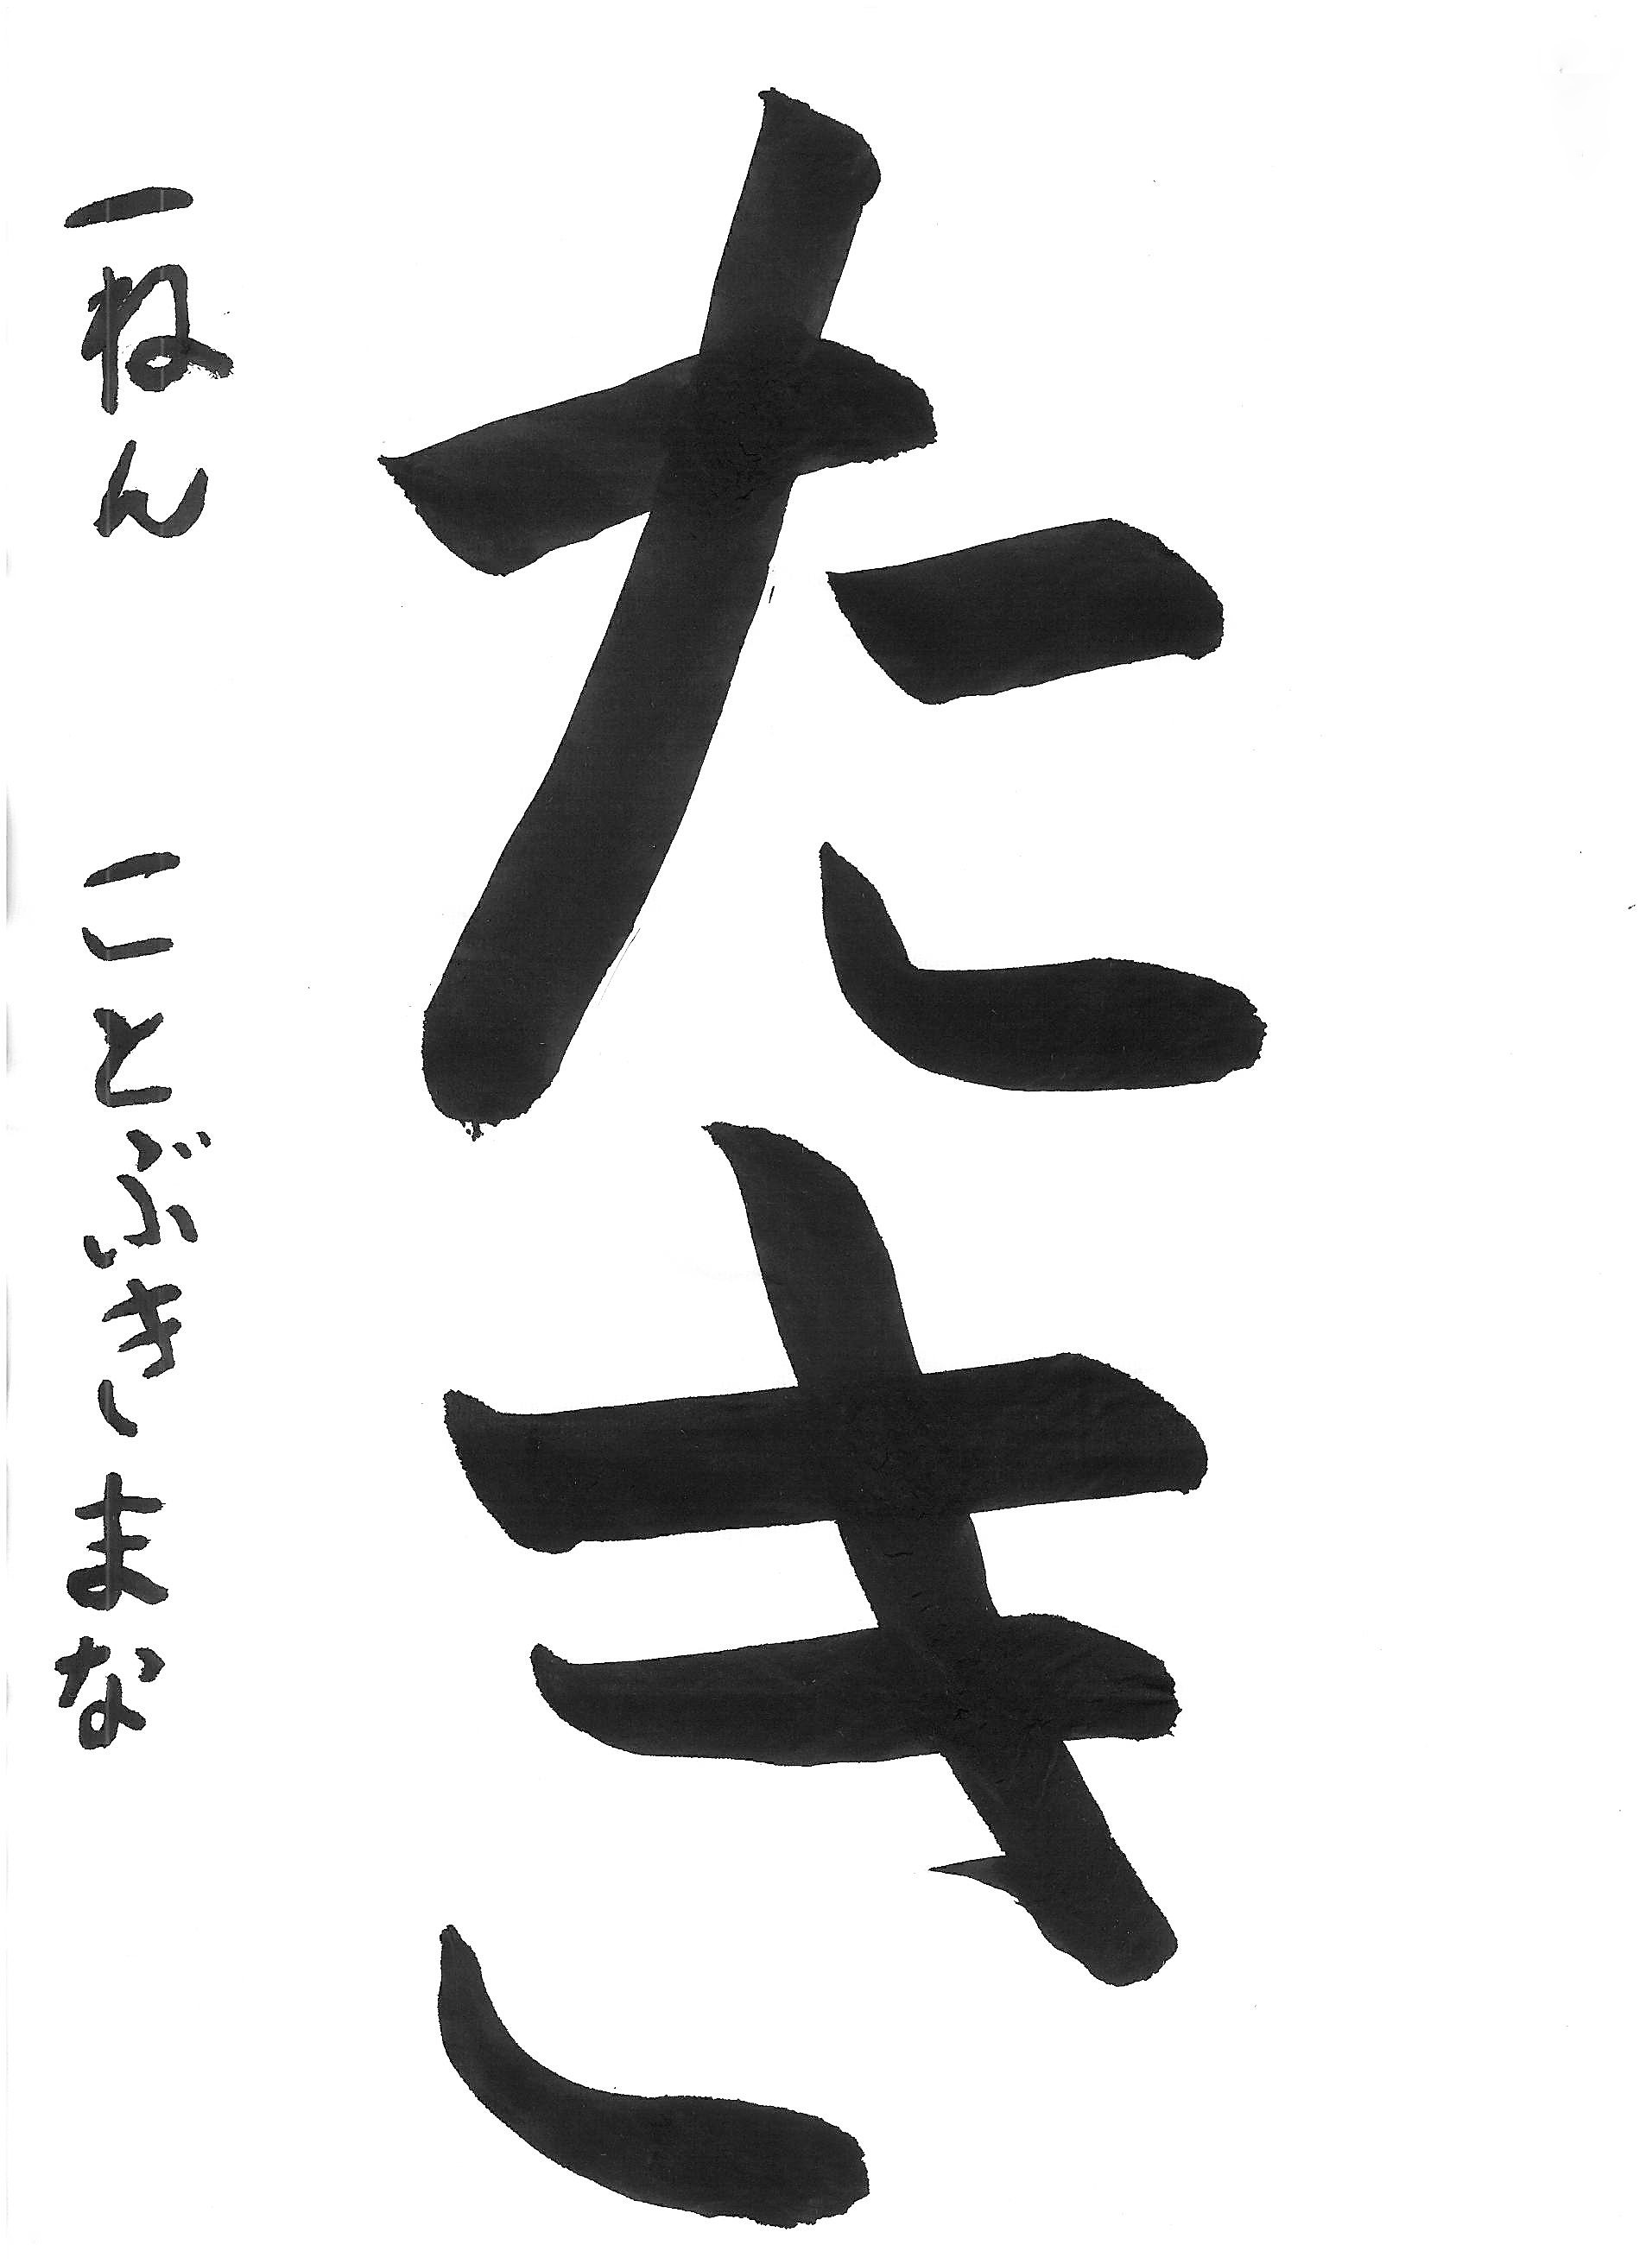 たき
一ねん ことぶきまな